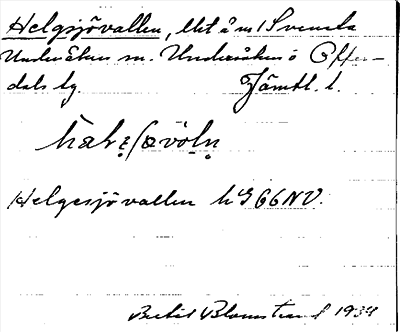 Helgsjövallen, Utt å m / Svenska
Undersåker sn. Undersåkers o Offer-
dals tg. Jämtl. l.
Helgesjövallen h G 66 NV.
Bertil Blomstrand 1934